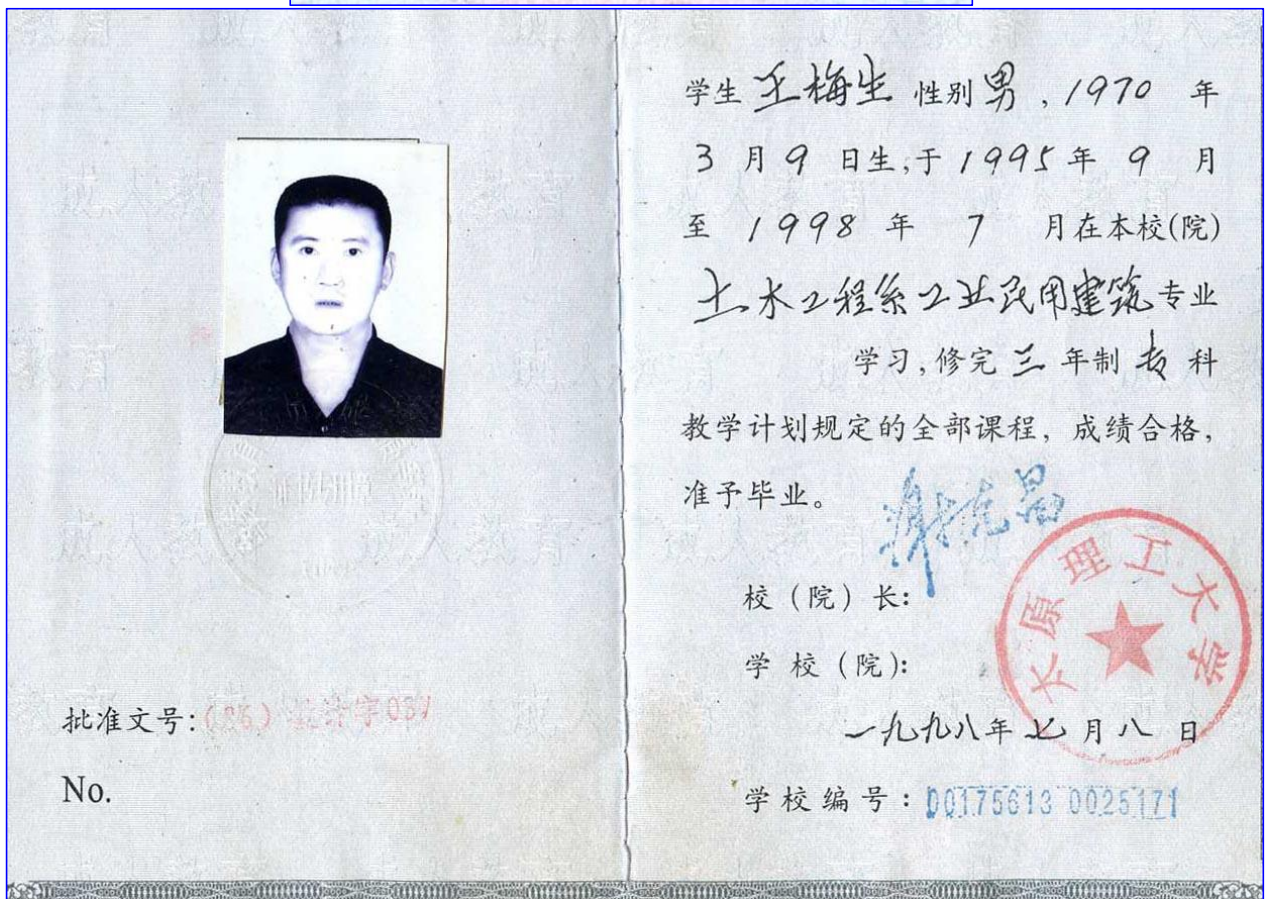 批准文号:
No.
学生 王梅生 性别 男 , 1970 年
3 月 9 日生,于 1995 年 9 月
至 1998 年 7 月在本校(院)
土木工程系工业民用建筑 专业
学习,修完 三 年制 专 科
教学计划规定的全部课程, 成绩合格,
准予毕业。
校 (院) 长:
学 校 (院):
太原理工大学
一九九八年 七 月 八 日
学校编号: 00175613 0025171